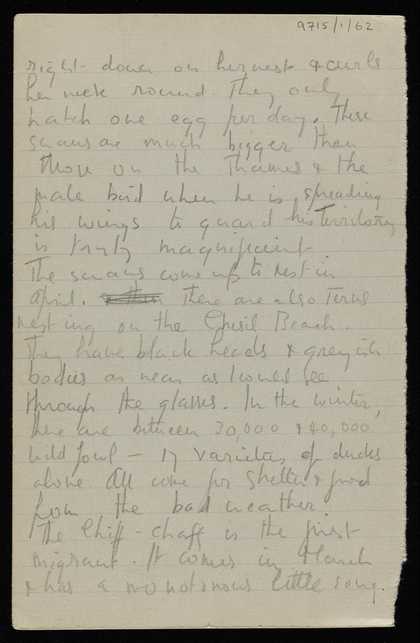 9715/1/62
right down on her nest & curls
her neck round. They only
hatch one egg per day. These
swans are much bigger than
those on the Thames & the
male bird when he is spreading
his wings to guard his Territory
is truly magnificent
The swans come up to nest in
April. There are also Terns
nesting on the Chesil Beach.
They have black heads & greyish
bodies as near as I could see
through the glasses. In the winter,
there are between 30,000 & 40,000
wild fowl – 17 varieties of ducks
alone. All come for shelter & food
from the bad weather.
The Chiff-chaff is the first
migrant. It comes in March
& has a monotonous little song.